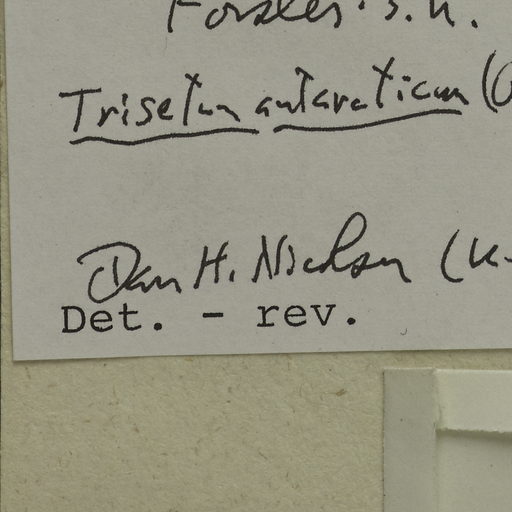 Forster s.n.
Trisetum antarcticum (
Dan H. Nicolson (
Det. - rev.